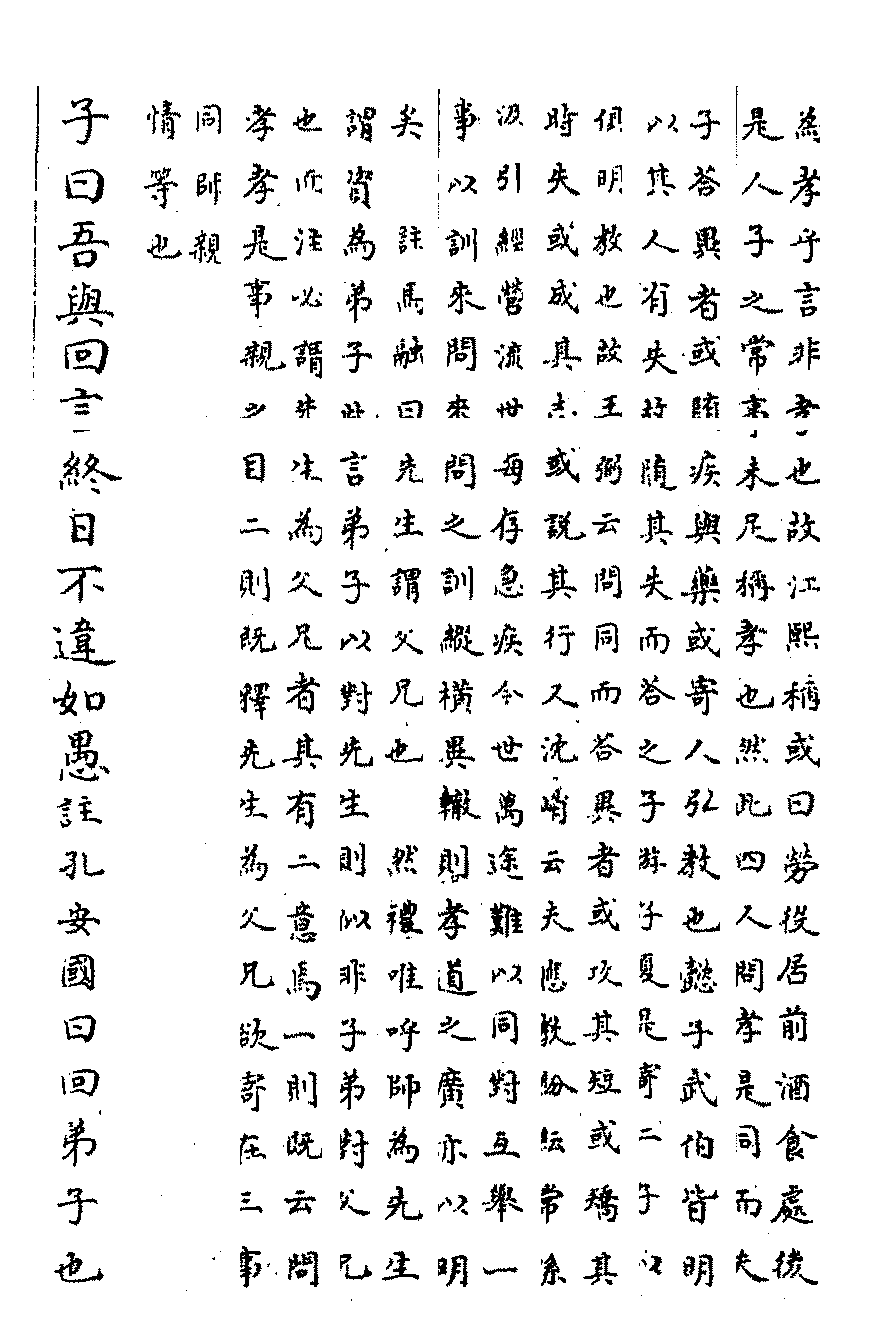 為孝乎言非孝也故江熙稱或曰勞役居前酒食處後
是人子之常事未足稱孝也然此四人問孝是同而夫
子答異者或隨疾與藥或寄人引教也懿子武伯皆明
以其人有失故隨其失而答之子游子夏是寄二子以
俱明教也故王弼云問同而答異者或攻其短或矯其
時失或成其志或說其行又沈峭云夫應教紛紜常系
汲引經營流世每存急疾今世萬途難以同對互舉一
事以訓來問來問之訓縱橫異轍則孝道之廣亦以明
矣 註馬融曰先生謂父兄也 然禮唯呼師為先生
謂資為弟子此言弟子以對先生則似非子弟對父兄
也而注必謂先生為父兄者其有二意焉一則既云問
孝孝是事親之目二則既釋先生為父兄欲寄在三事
同師親
情等也
子曰吾與回言終日不違如愚註孔安國曰回弟子也